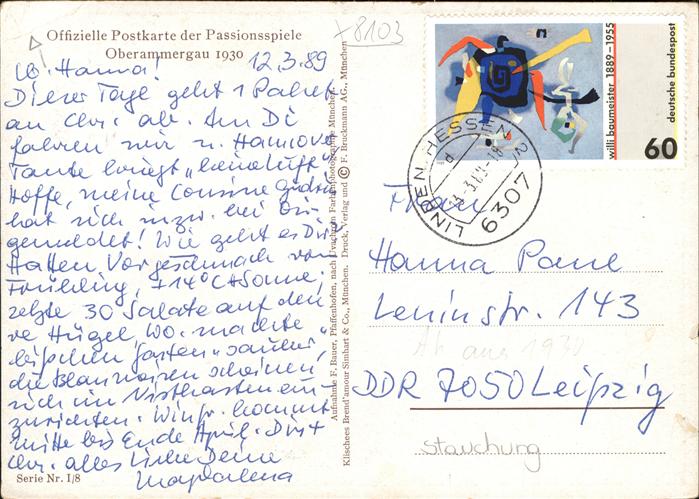 Offizielle Postkarte der Passionsspiele
Oberammergau 1930
+8103
12.3.89
Lb. Hanna!
Dieser Tage geht 1 Paket
an Chr. ab. Am Di
fahren wir n. Hannover
Tante kriegt „keine Luft“
Hoffe, meine Cousine Gudrun
hat sich inzw. bei Dir
gemeldet! Wie geht es Dir
Hatten Vorgeschmack von
Frühling, +14°C + Sonne,
setzte 30 Salate auf
Hügel, Wo. machte „
Garten“ sauber,
die Blaumeisen scheinen
sich im Nistkasten ein-
zurichten. Winfr. kommt
Mitte bis Ende April. Dir +
Chr. alles Liebe Deine
Magdalena
Serie Nr. I/8
Aufnahme F. Bauer, Pfaffenhofen, nach Uvachrom Farbenphotographie München.
Klischees Brend'amour Simhart & Co., München. Druck, Verlag und © F. Bruckmann AG., München
willi baumeister 1889-1955
deutsche bundespost
60
LINDEN, HESSEN 2
6307
Frau
Hanna Paul
Leninstr. 143
Ab aus 1930
DDR 7050 Leipzig
Stauchung